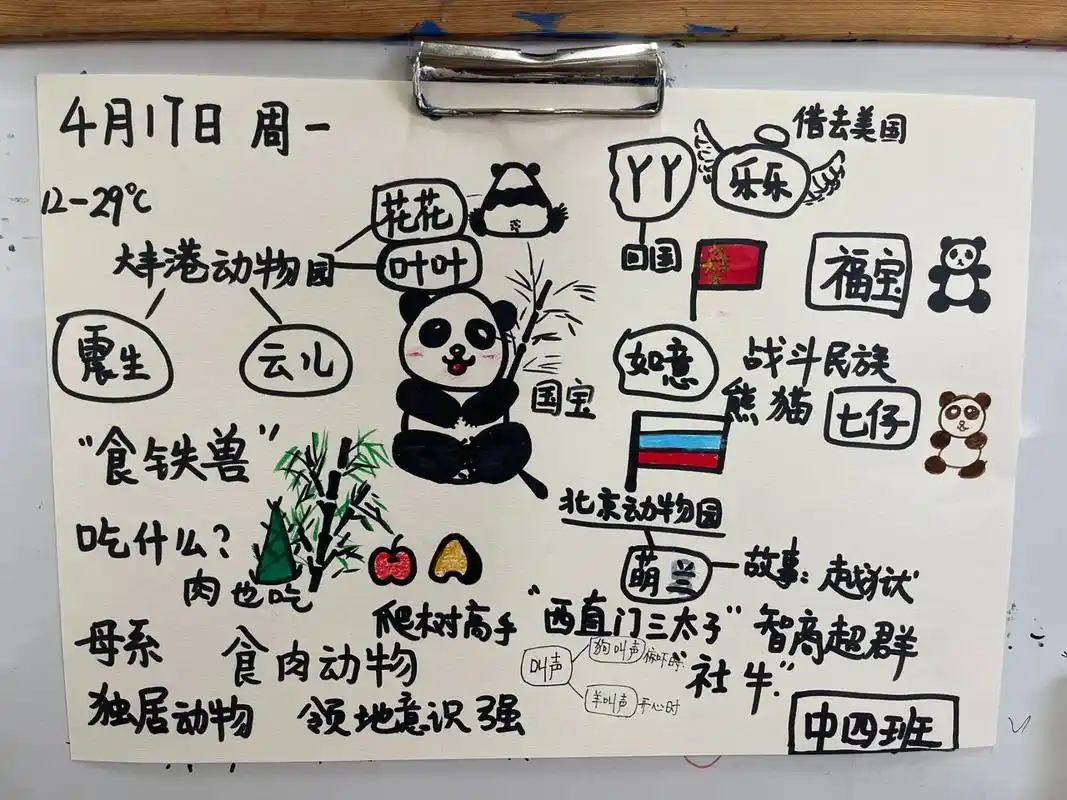 4月17日 周一
12-29℃
大丰港动物园
花花
叶叶
震生
云儿
丫丫
乐乐
借去美国
回国
福宝
如意
战斗民族
熊猫
七仔
国宝
"食铁兽"
北京动物园
萌兰
故事:越狱
吃什么?
肉也吃
爬树高手
"西直门三太子"
智商超群
母系
食肉动物
叫声
狗叫声
羊叫声 开心时
"社牛"
独居动物
领地意识强
中四班